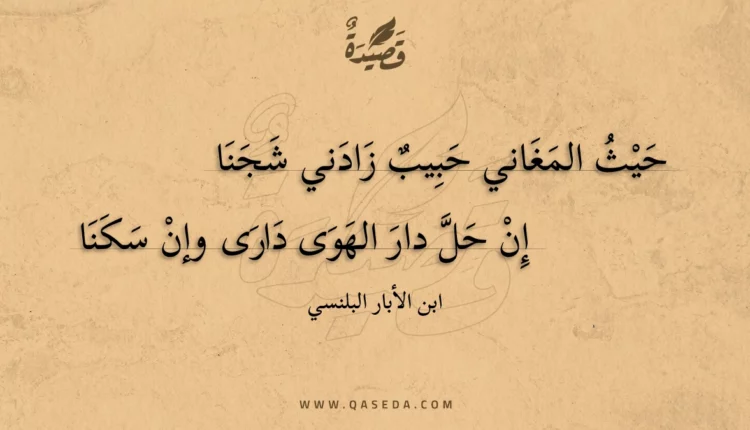 قَصِيدَةٌ
حَيْثُ المَغَاني حَبِيبٌ زَادَني شَجَنَا
إِنْ حَلَّ دارَ الهَوَى دَارَى وإنْ سَكَنَا
ابن الأبار البلنسي
WWW.QASEDA.COM